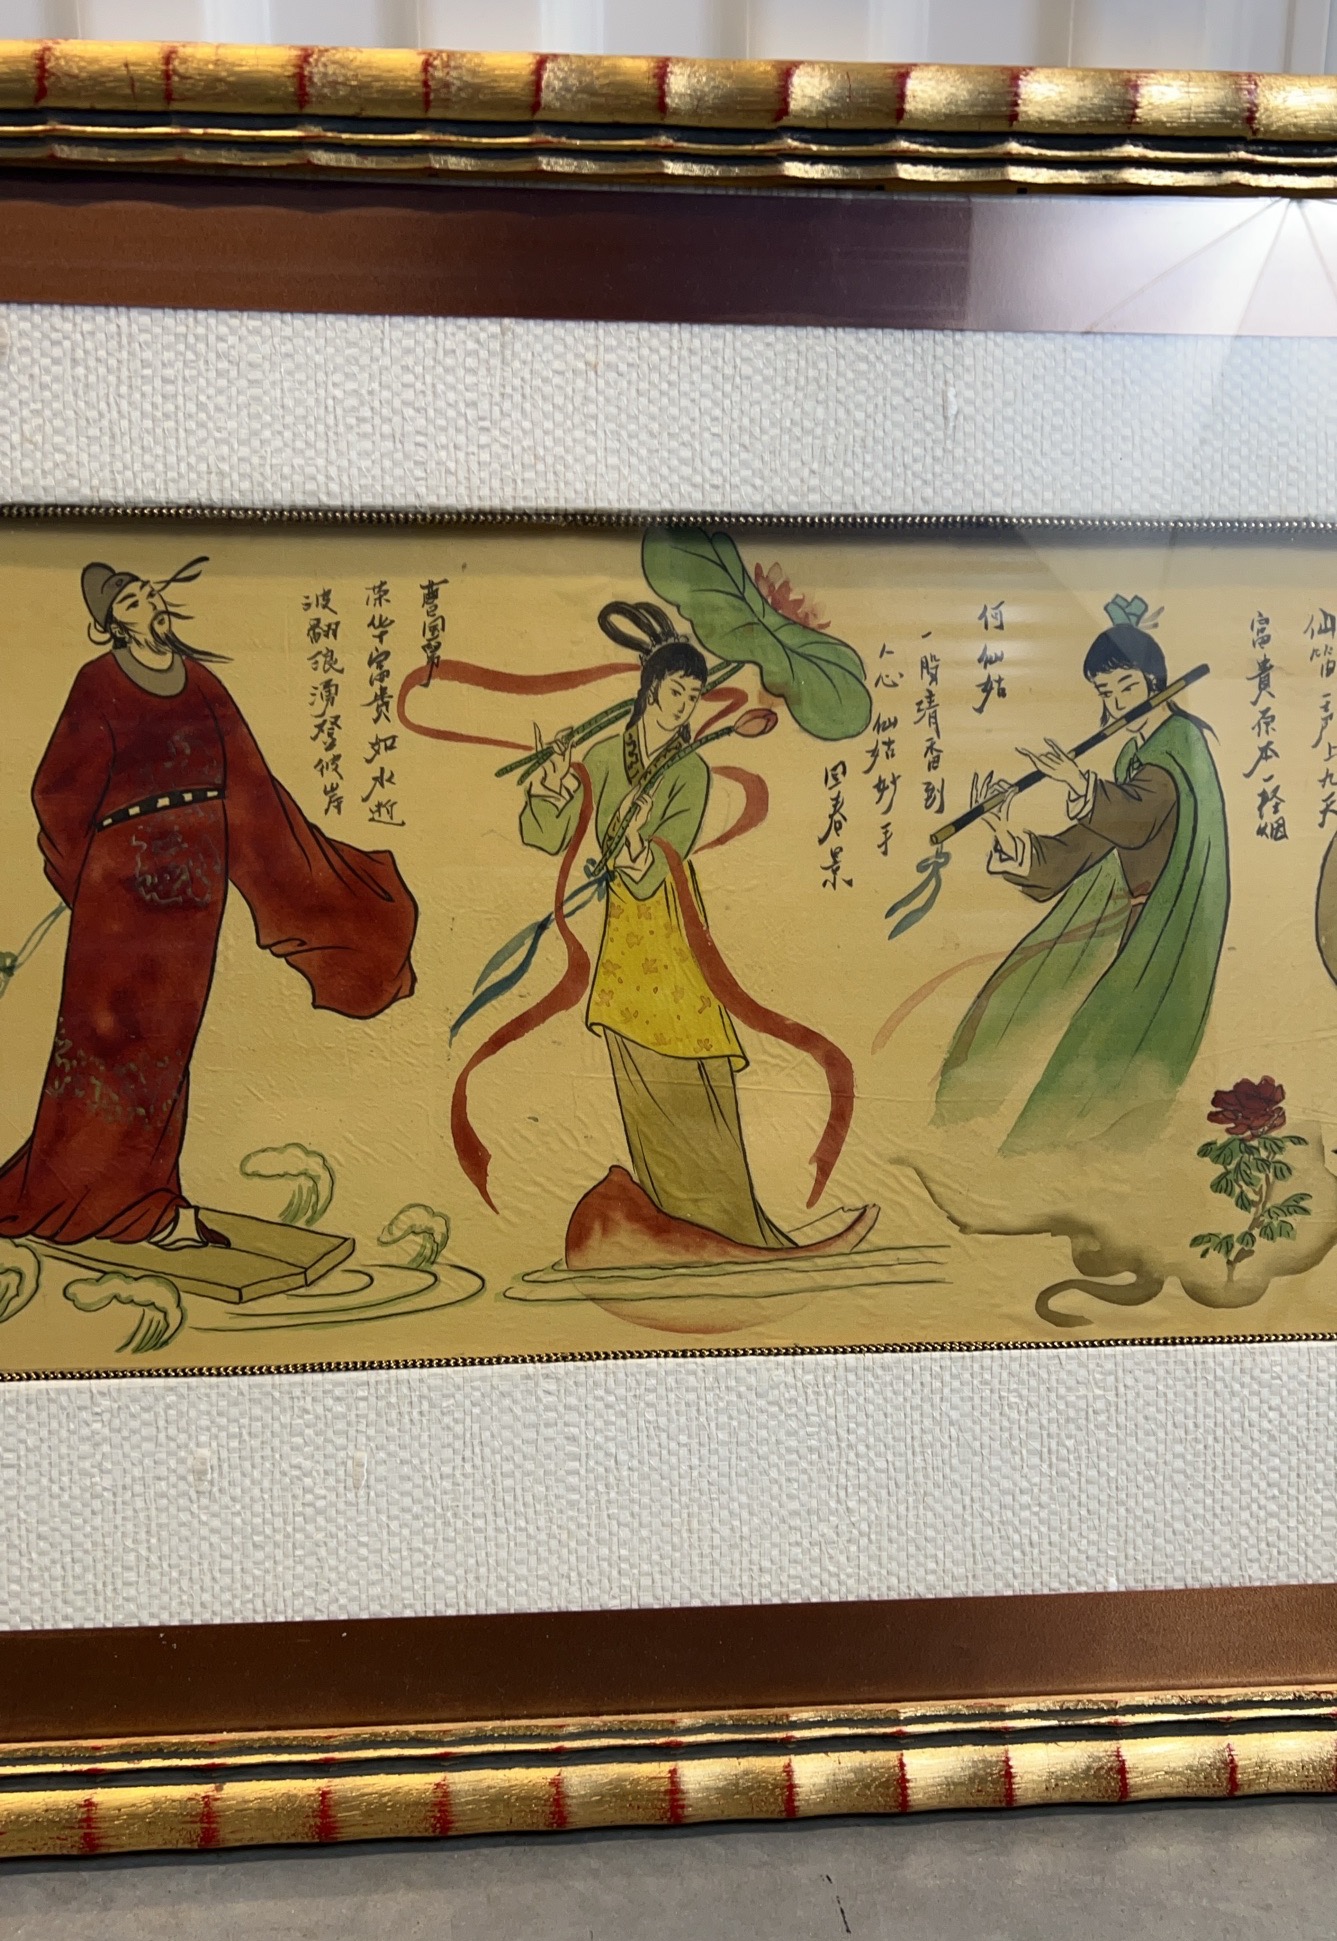 仙笛一声上九天
富貴原本一轻烟
何仙姑
一股清香到
人心 仙姑妙手
回春景
曹国舅
荣华富贵如水逝
波翻浪湧登彼岸